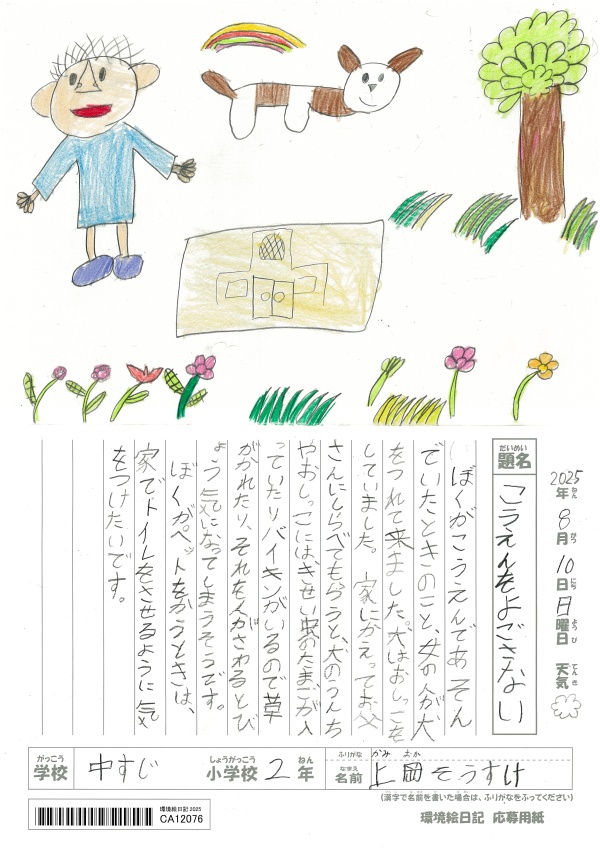 2025年8月10日日曜日 天気
ねん がつ にち ようび てんき
だいめい
題名
こうえんをよごさない
ぼくがこうえんであそん
でいたときのこと、女の人が犬
をつれて来ました。犬はおしっこを
していました。家にかえってお父
さんにしらべてもらうと、犬のうんち
やおしっこには、きせい虫のたまごが入
っていたりバイキンがいるので草
がかれたり、それを人がさわるとび
ょう気になってしまうそうです。
ぼくがペットをかうときは、
家でトイレをさせるように気
をつけたいです。
がっこう しょうがっこう ねん ふりがな かみ おか
学校 中すじ 小学校 2年 なまえ 名前 上岡そうすけ
(漢字で名前を書いた場合は、ふりがなをふってください)
環境絵日記 2025
CA12076
環境絵日記 応募用紙